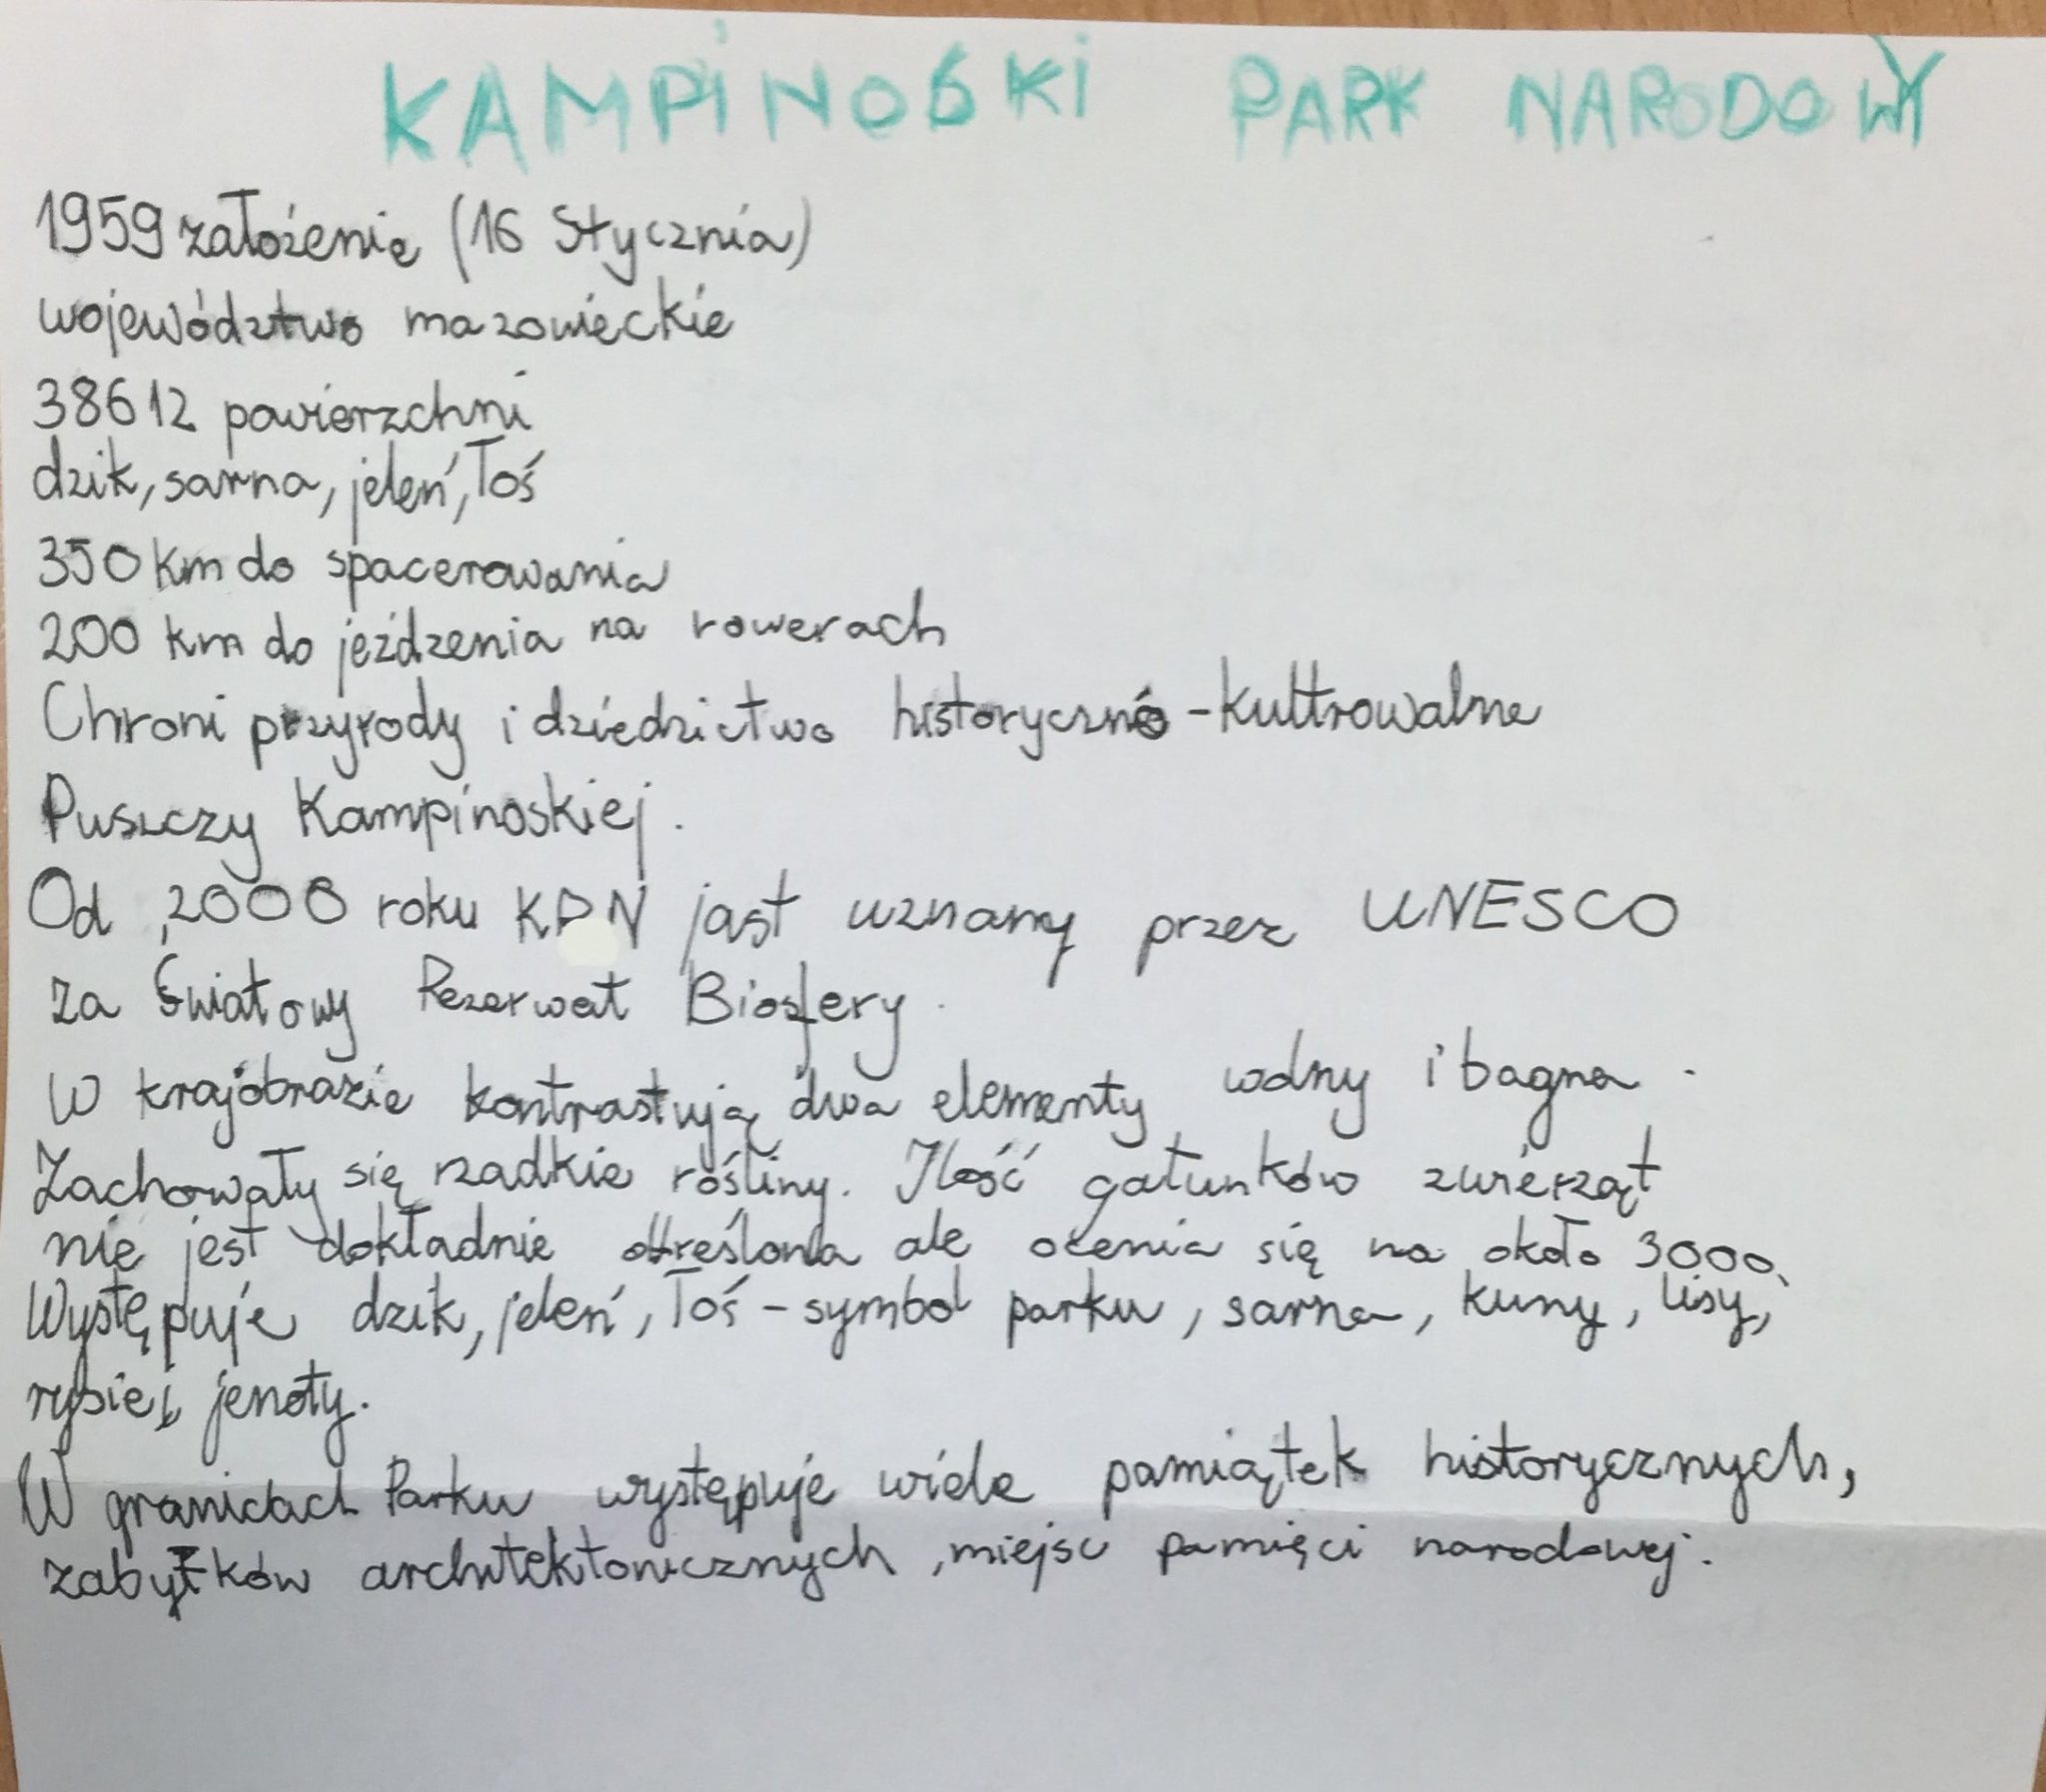 KAMPINOSKI PARK NARODOWY
1959 założenie (16 Stycznia)
województwo mazowieckie
38612 powierzchni
dzik, sarna, jeleń, łoś
350 km do spacerowania
200 km do jeżdzenia na rowerach
Chroni przyrody i dziedzictwo historyczno - kultrowalne
Puszczy Kampinoskiej.
Od 2000 roku KPN jast uznany przez UNESCO
za Światowy Rezerwat Biosfery.
W krajobrazie kontrastują dwa elementy wodny i bagna.
Zachowały się rzadkie rośliny. Ilość gatunków zwierząt
nie jest dokładnie określona ale ocenia się na około 3000.
Występuje dzik, jeleń, łoś - symbol parku, sarna, kuny, lisy,
rysie i jenoty.
W granicach Parku występuje wiele pamiątek historycznych,
zabytków architektonicznych, miejsc pamięci narodowej.